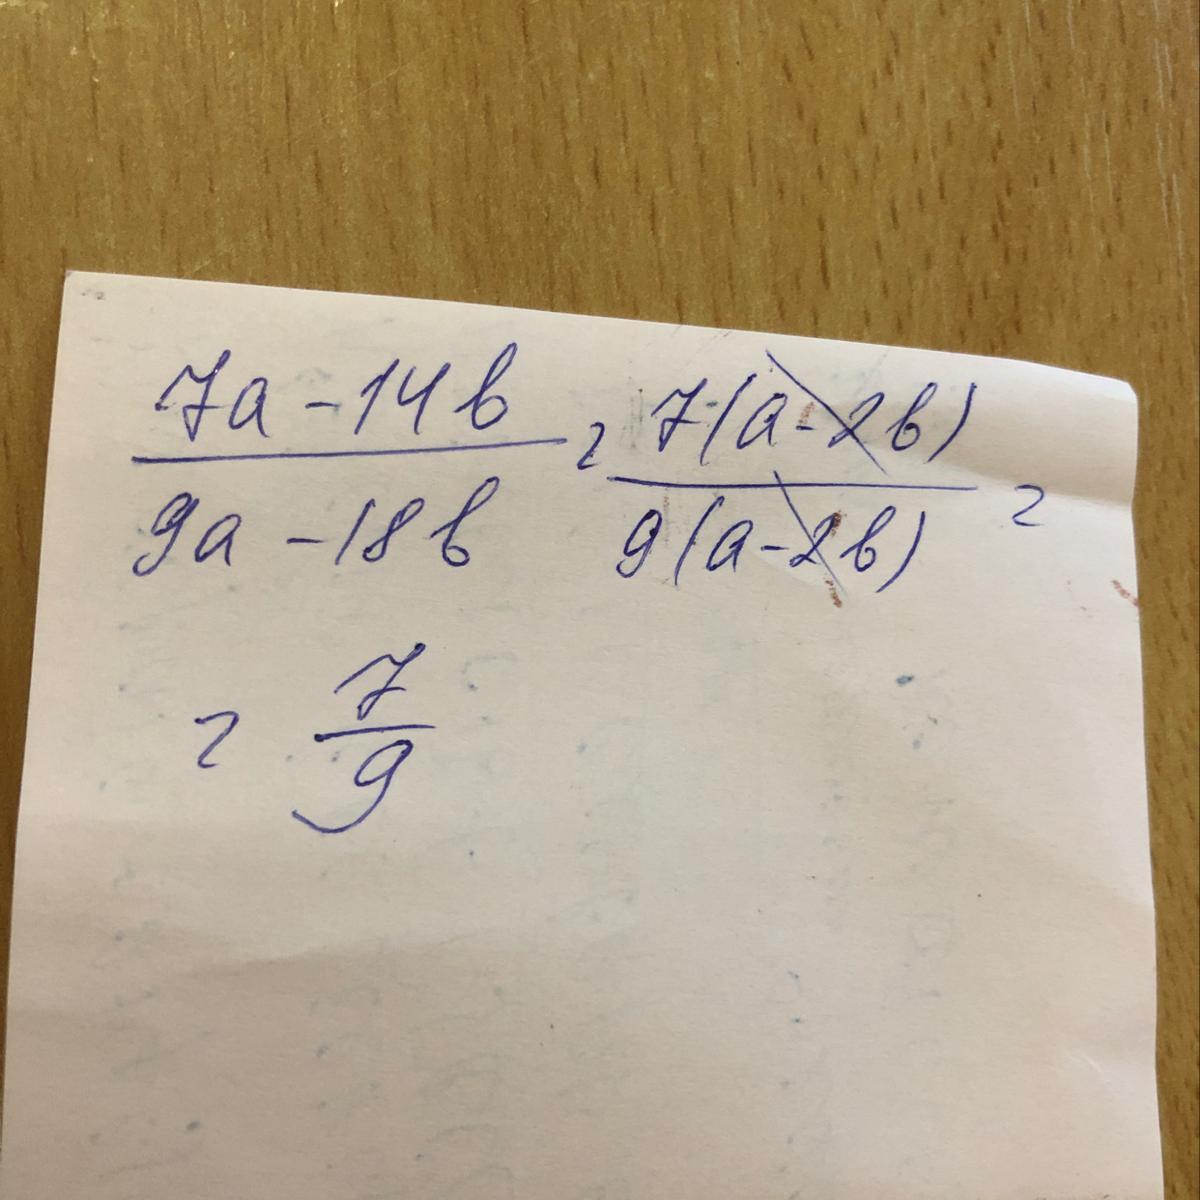 (7a - 14b)/(9a - 18b) = 7(a - 2b)/9(a - 2b) =
= 7/9